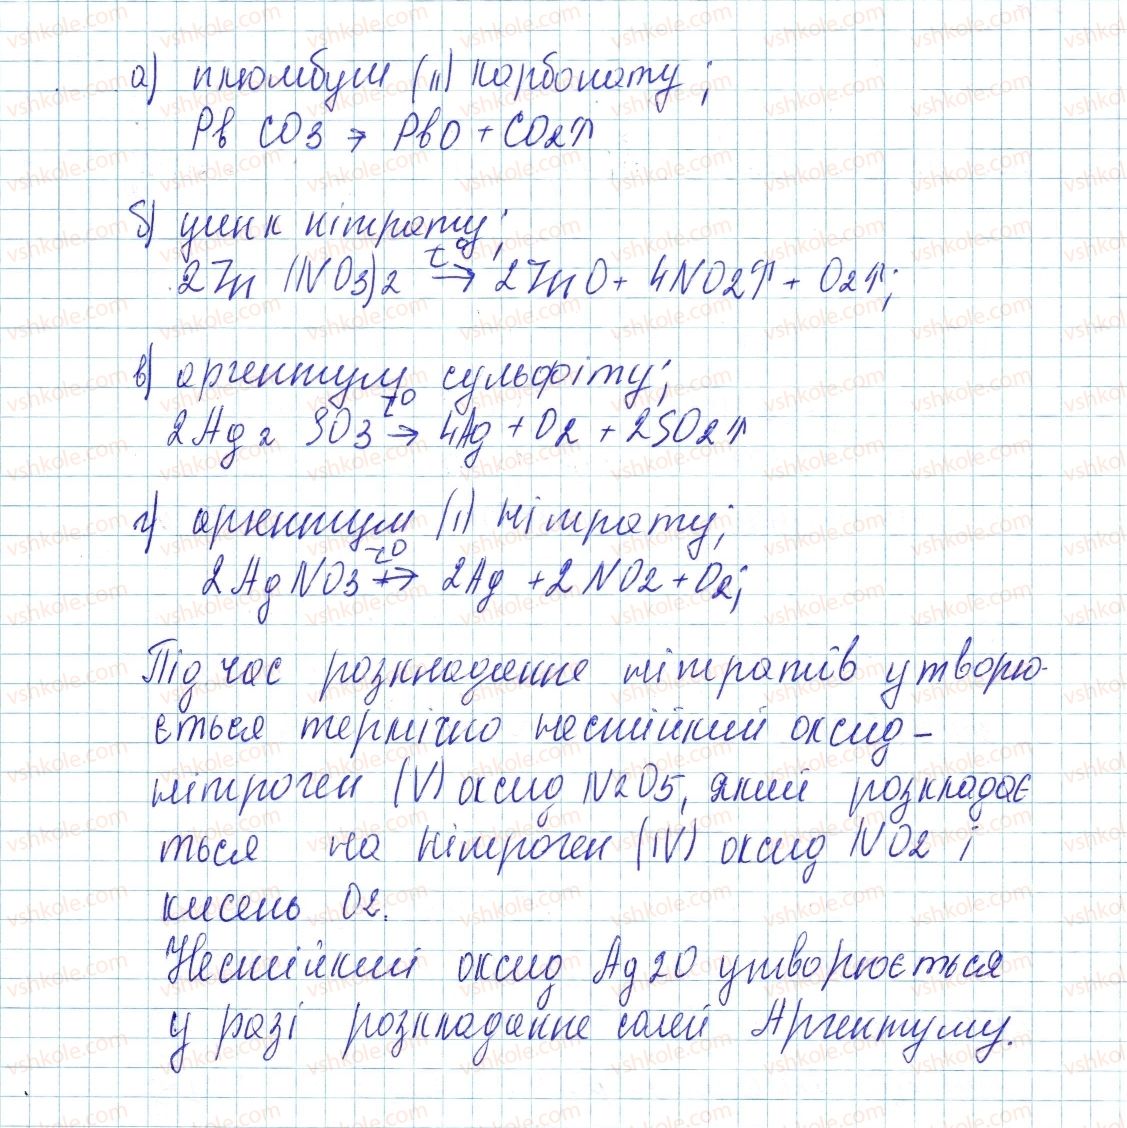 а) плюмбум (II) карбонату;
PbCO3 → PbO + CO2↑
б) цинк нітрату;
2Zn(NO3)2 t° → 2ZnO + 4NO2↑ + O2↑;
в) аргентум сульфіту;
2Ag2SO3 t° → 4Ag + O2 + 2SO2↑
г) аргентум (I) нітрату;
2AgNO3 t° → 2Ag + 2NO2 + O2;
Під час розкладання нітратів утворю-
ється термічно нестійкий оксид -
нітроген (V) оксид N2O5, який розкладає
ться на нітроген (IV) оксид NO2 і
кисень O2.
Нестійкий оксид Ag2O утворюється
у разі розкладання солей Аргентуму.